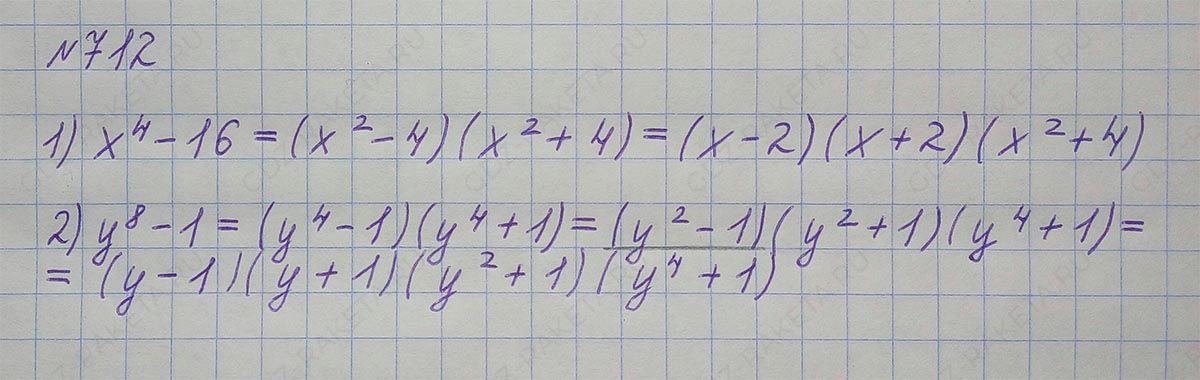 №712
1) x⁴ - 16 = (x² - 4)(x² + 4) = (x - 2)(x + 2)(x² + 4)
2) y⁸ - 1 = (y⁴ - 1)(y⁴ + 1) = (y² - 1)(y² + 1)(y⁴ + 1) =
= (y - 1)(y + 1)(y² + 1)(y⁴ + 1)